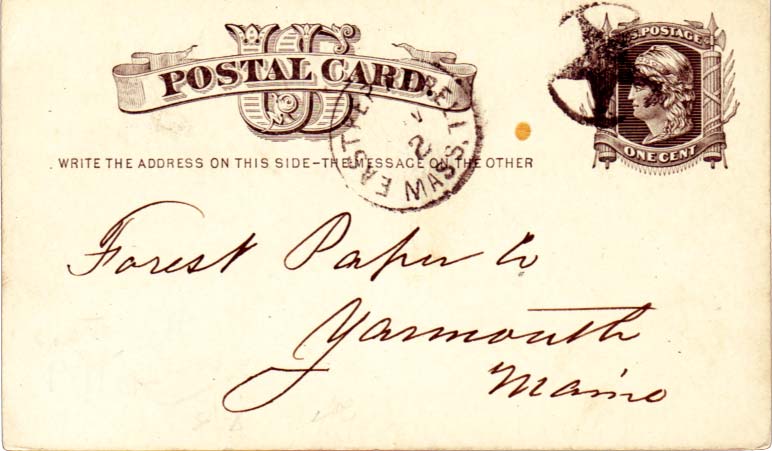 US
POSTAL CARD.
U.S. POSTAGE
ONE CENT
WRITE THE ADDRESS ON THIS SIDE–THE MESSAGE ON THE OTHER
EAST PEPPERELL
MASS.
2
Forest Paper Co
Yarmouth
Maine